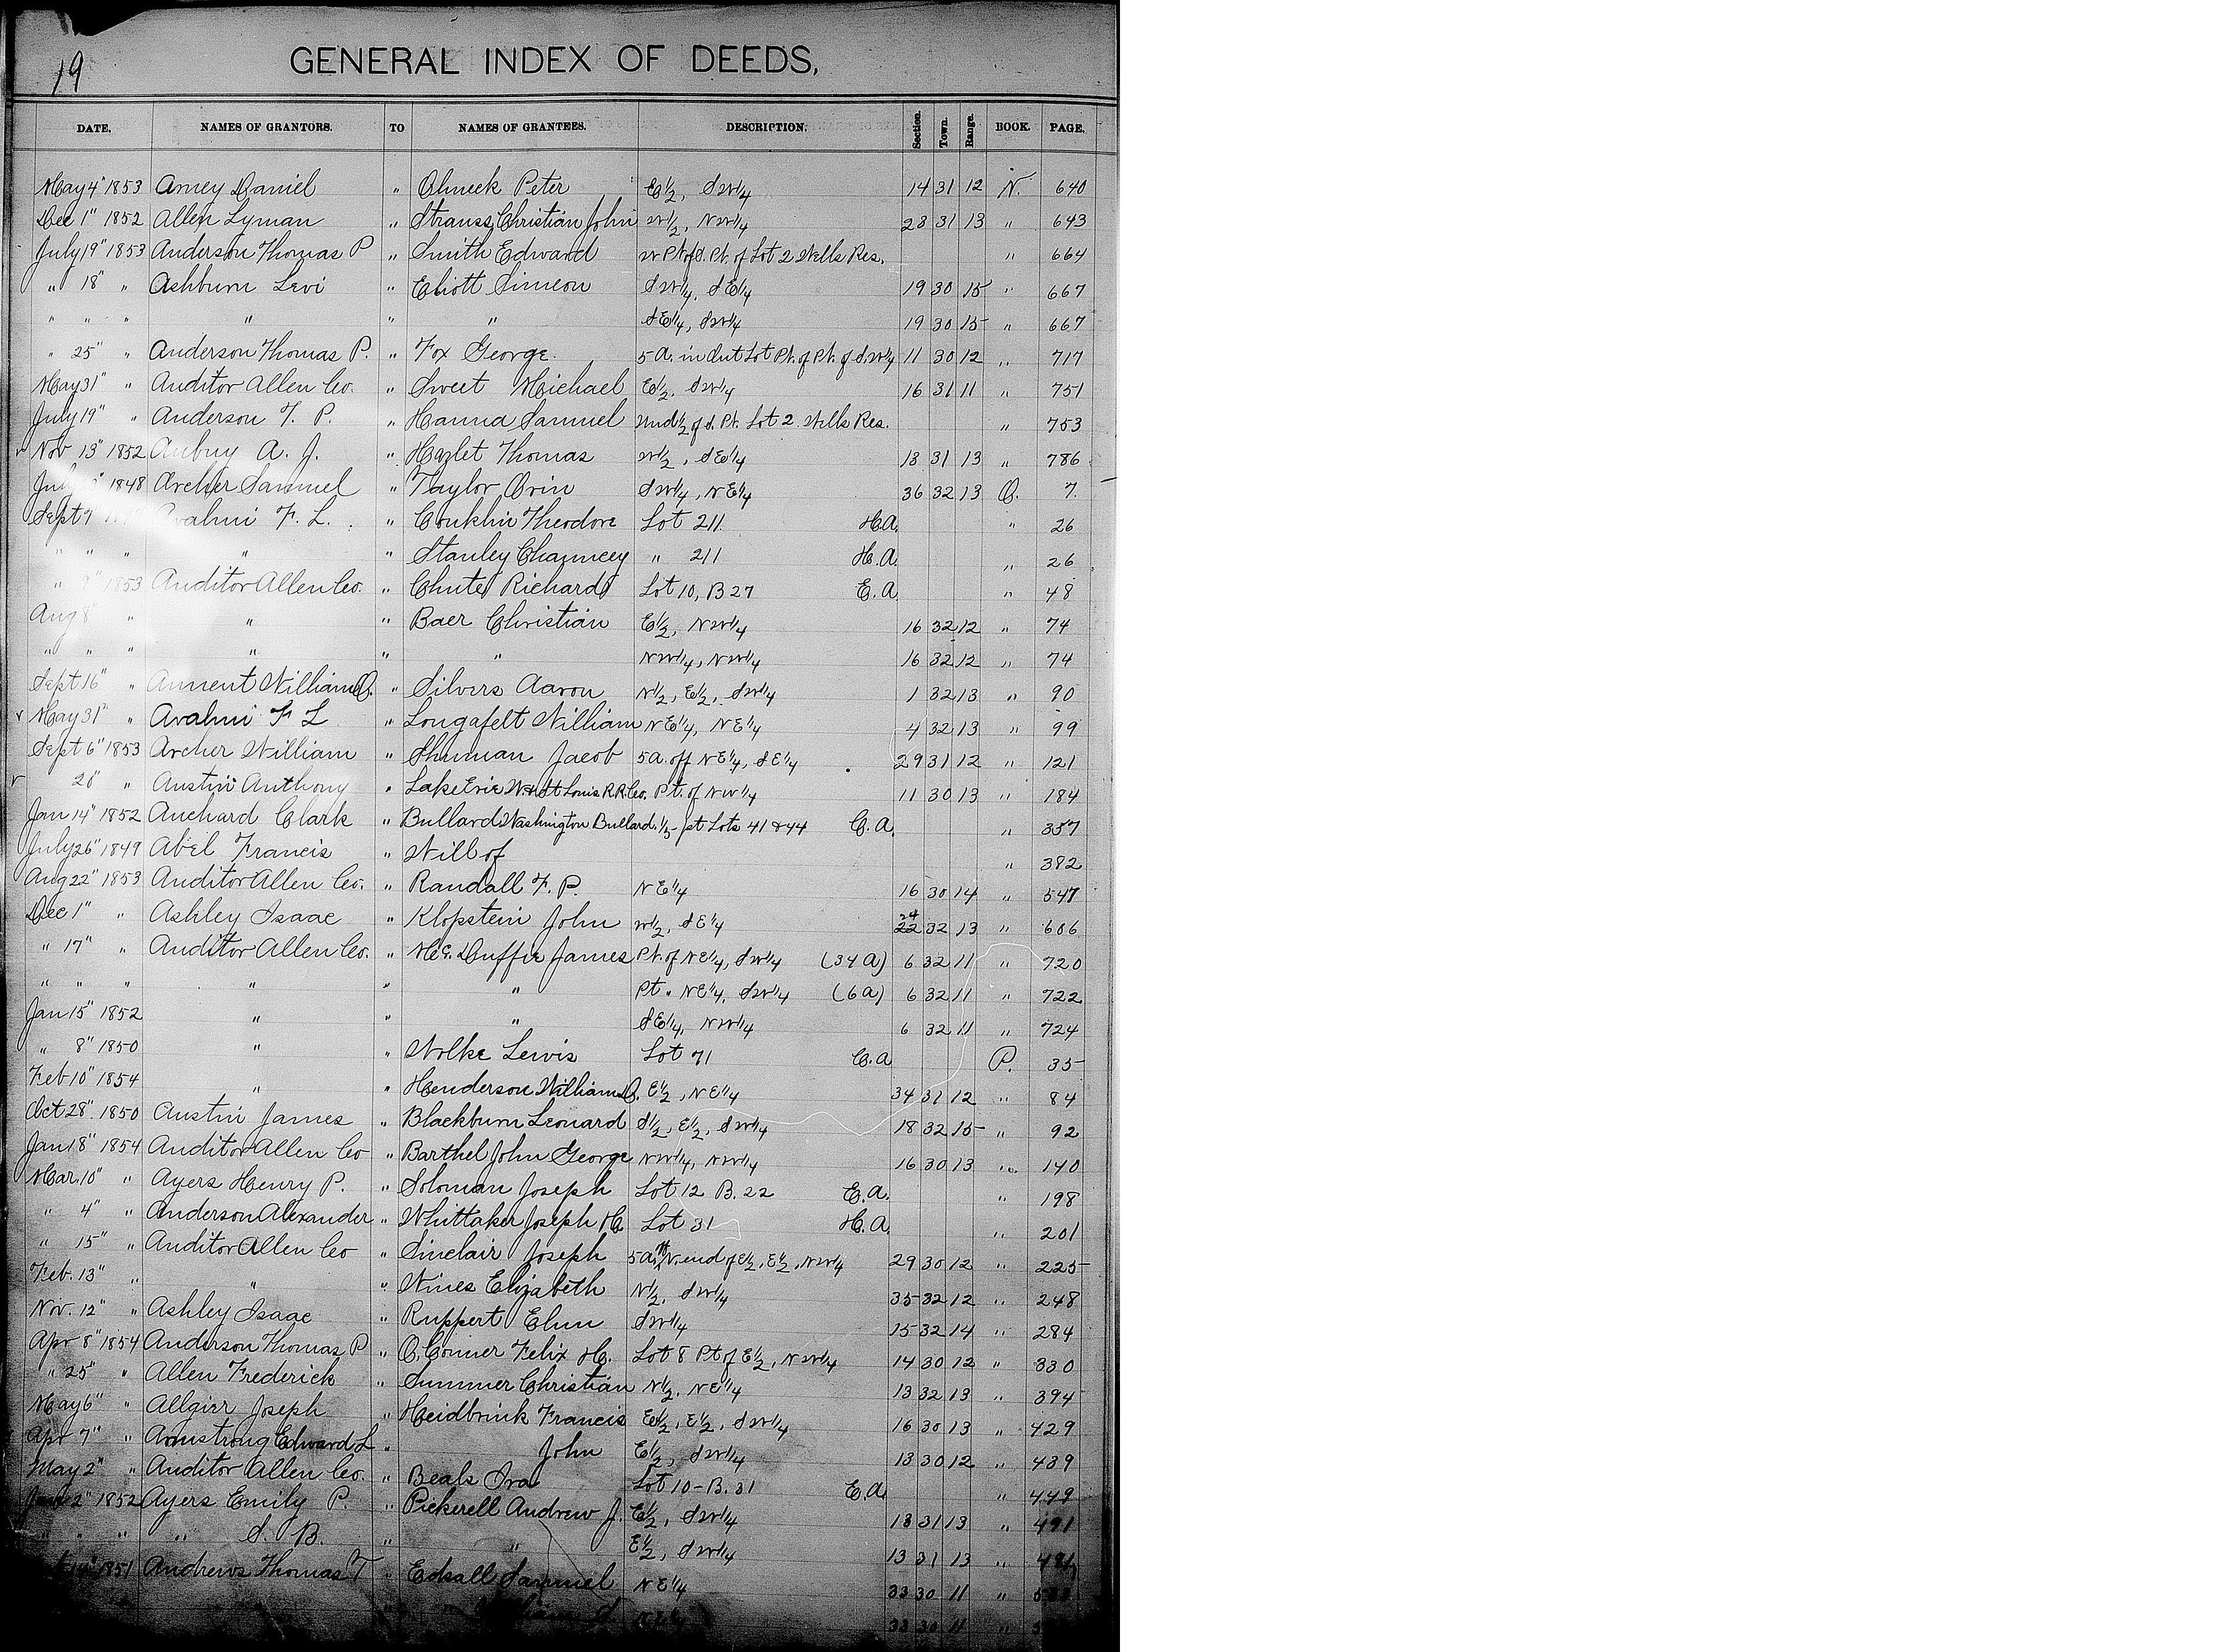 19
GENERAL INDEX OF DEEDS.
DATE. NAMES OF GRANTORS. TO NAMES OF GRANTEES. DESCRIPTION. Section. Town. Range. BOOK. PAGE.
May 4" 1853 Amey Daniel " Peter E1/2, SW1/4 14 31 12 N. 640
Dec 1" 1852 Allen Lyman " Strauss, Christian John W1/2, NW1/4 23 31 13 " 643
July 19" 1853 Anderson Thomas P " Smith Edward W Pt of S. Pt. of Lot 2 Wells Res. " 664
" 18" " Ashburn Levi " Eliott Simeon SW1/4, SE1/4 19 30 15 " 667
" " " " " " SE1/4, SW1/4 19 30 15 " 667
" 25" " Anderson Thomas P. " Fox George 5 A. in Out Lot Pt. of Pt. of SW1/4 11 30 12 " 717
May 31" " Auditor Allen Co. " Sweet Michael E1/2, SW1/4 16 31 11 " 751
July 19" " Anderson T. P. " Hanna Samuel Und 1/2 of S. Pt. Lot 2 Wells Res. " 753
Nov 13" 1852 Aubry A. J. " Hazlet Thomas W1/2, SE1/4 13 31 13 " 786
July 1848 Archer Samuel " Taylor Orin SW1/4, NE1/4 36 32 13 O. 7
Sept 7 Avaline F. L. " Conklin Theodore Lot 211 H.A. " 26
" " " " " Stanley Chauncey " 211 H.A. " 26
" 9" 1853 Auditor Allen Co. " Chute Richard Lot 10, B 27 E.A. " 48
Aug 8" " " " Baer Christian E1/2, NW1/4 16 32 12 " 74
" " " " " " NW1/4, NW1/4 16 32 12 " 74
Sept 16" " Amment William O. " Silvers Aaron N1/2, E1/2, SW1/4 1 32 13 " 90
v May 31" " Avalini F L " Longafelt William NE1/4, NE1/4 4 32 13 " 99
Sept 6" 1853 Archer William " Shuman Jacob 5 A. off NE1/4, SE1/4 29 31 12 " 121
v 20" " Austin Anthony " Lake Erie W and St Louis R.R. Co. Pt. of NW1/4 11 30 13 " 184
Jan 14" 1852 Anchard Clark " Bullard Washington Bullard. 1/3 Lots 41 & 44 C.A. " 357
July 26" 1849 Abel Francis " Will of " 382
Aug 22" 1853 Auditor Allen Co. " Randall F. P. NE1/4 16 30 14 " 547
Dec 1" " Ashley Isaac " Klopstein John W1/2, SE1/4 24 22 32 13 " 606
" 17" " Auditor Allen Co. " Mc. Duffie James Pt. of NE1/4, SW1/4 (34 A) 6 32 11 " 720
" " " " " " Pt " NE1/4, SW1/4 (6 A) 6 32 11 " 722
Jan 15" 1852 " " " SE1/4, NW1/4 6 32 11 " 724
" 8" 1850 " " Wolke Lewis Lot 71 C.A P. 35
Feb 10" 1854 " " Henderson William D. E1/2, NE1/4 34 31 12 " 84
Oct 28" 1850 Austin James " Blackburn Leonard S1/2, E1/2, SW1/4 18 32 15 " 92
Jan 18" 1854 Auditor Allen Co " Barthel John George NW1/4, NW1/4 16 30 13 " 140
Mar. 10" " Ayers Henry P. " Soloman Joseph Lot 12 B. 22 E.A. " 198
" 4" " Anderson Alexander " Whittaker Joseph H. Lot 31 H.A. " 201
" 15" " Auditor Allen Co " Sinclair Joseph 5 A. N. end of E1/2, E1/2, NW1/4 29 30 12 " 225
Feb. 13" " " " Wines Elizabeth N1/2, SW1/4 35 32 12 " 248
Nov. 12" " Ashley Isaac " Ruppert SW1/4 15 32 14 " 284
Apr 8" 1854 Anderson Thomas P " O. Conner Felix H. Lot 8 Pt of E1/2, NW1/4 14 30 12 " 330
" 25" " Allen Frederick " Summer Christian N1/2, NE1/4 13 32 13 " 394
May 6" " Allgier Joseph " Heidbrink Francis E1/2, E1/2, SW1/4 16 30 13 " 429
Apr 7" " Armstrong Edward L " John E1/2, SW1/4 13 30 12 " 439
May 2" " Auditor Allen Co. " Beals Ira Lot 10 - B. 31 E.A. " 449
2" 1852 Ayers Emily P. " Pickerell Andrew J. E1/2, SW1/4 13 31 13 " 491
" " " " S. B. " " E1/2, SW1/4 13 31 13 "
1851 Andrews Thomas T " Edsall Samuel NE1/4 33 30 11 "
33 30 11 "